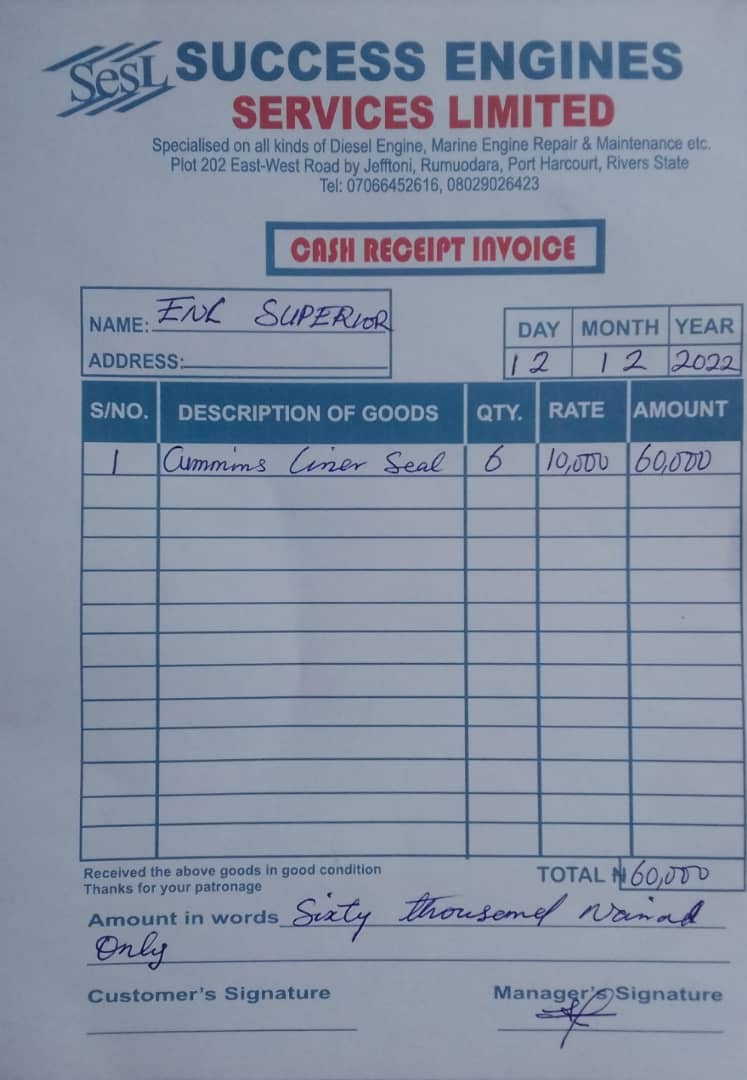 SesL SUCCESS ENGINES
SERVICES LIMITED
Specialised on all kinds of Diesel Engine, Marine Engine Repair & Maintenance etc.
Plot 202 East-West Road by Jefftoni, Rumuodara, Port Harcourt, Rivers State
Tel: 07066452616, 08029026423
CASH RECEIPT INVOICE
NAME: ENL SUPERIOR
ADDRESS:
DAY MONTH YEAR
12 12 2022
S/NO. DESCRIPTION OF GOODS QTY. RATE AMOUNT
1 Cummins Liner Seal 6 10,000 60,000
Received the above goods in good condition
Thanks for your patronage
TOTAL ₦ 60,000
Amount in words Sixty thousand
Only
Customer's Signature
Manager's Signature